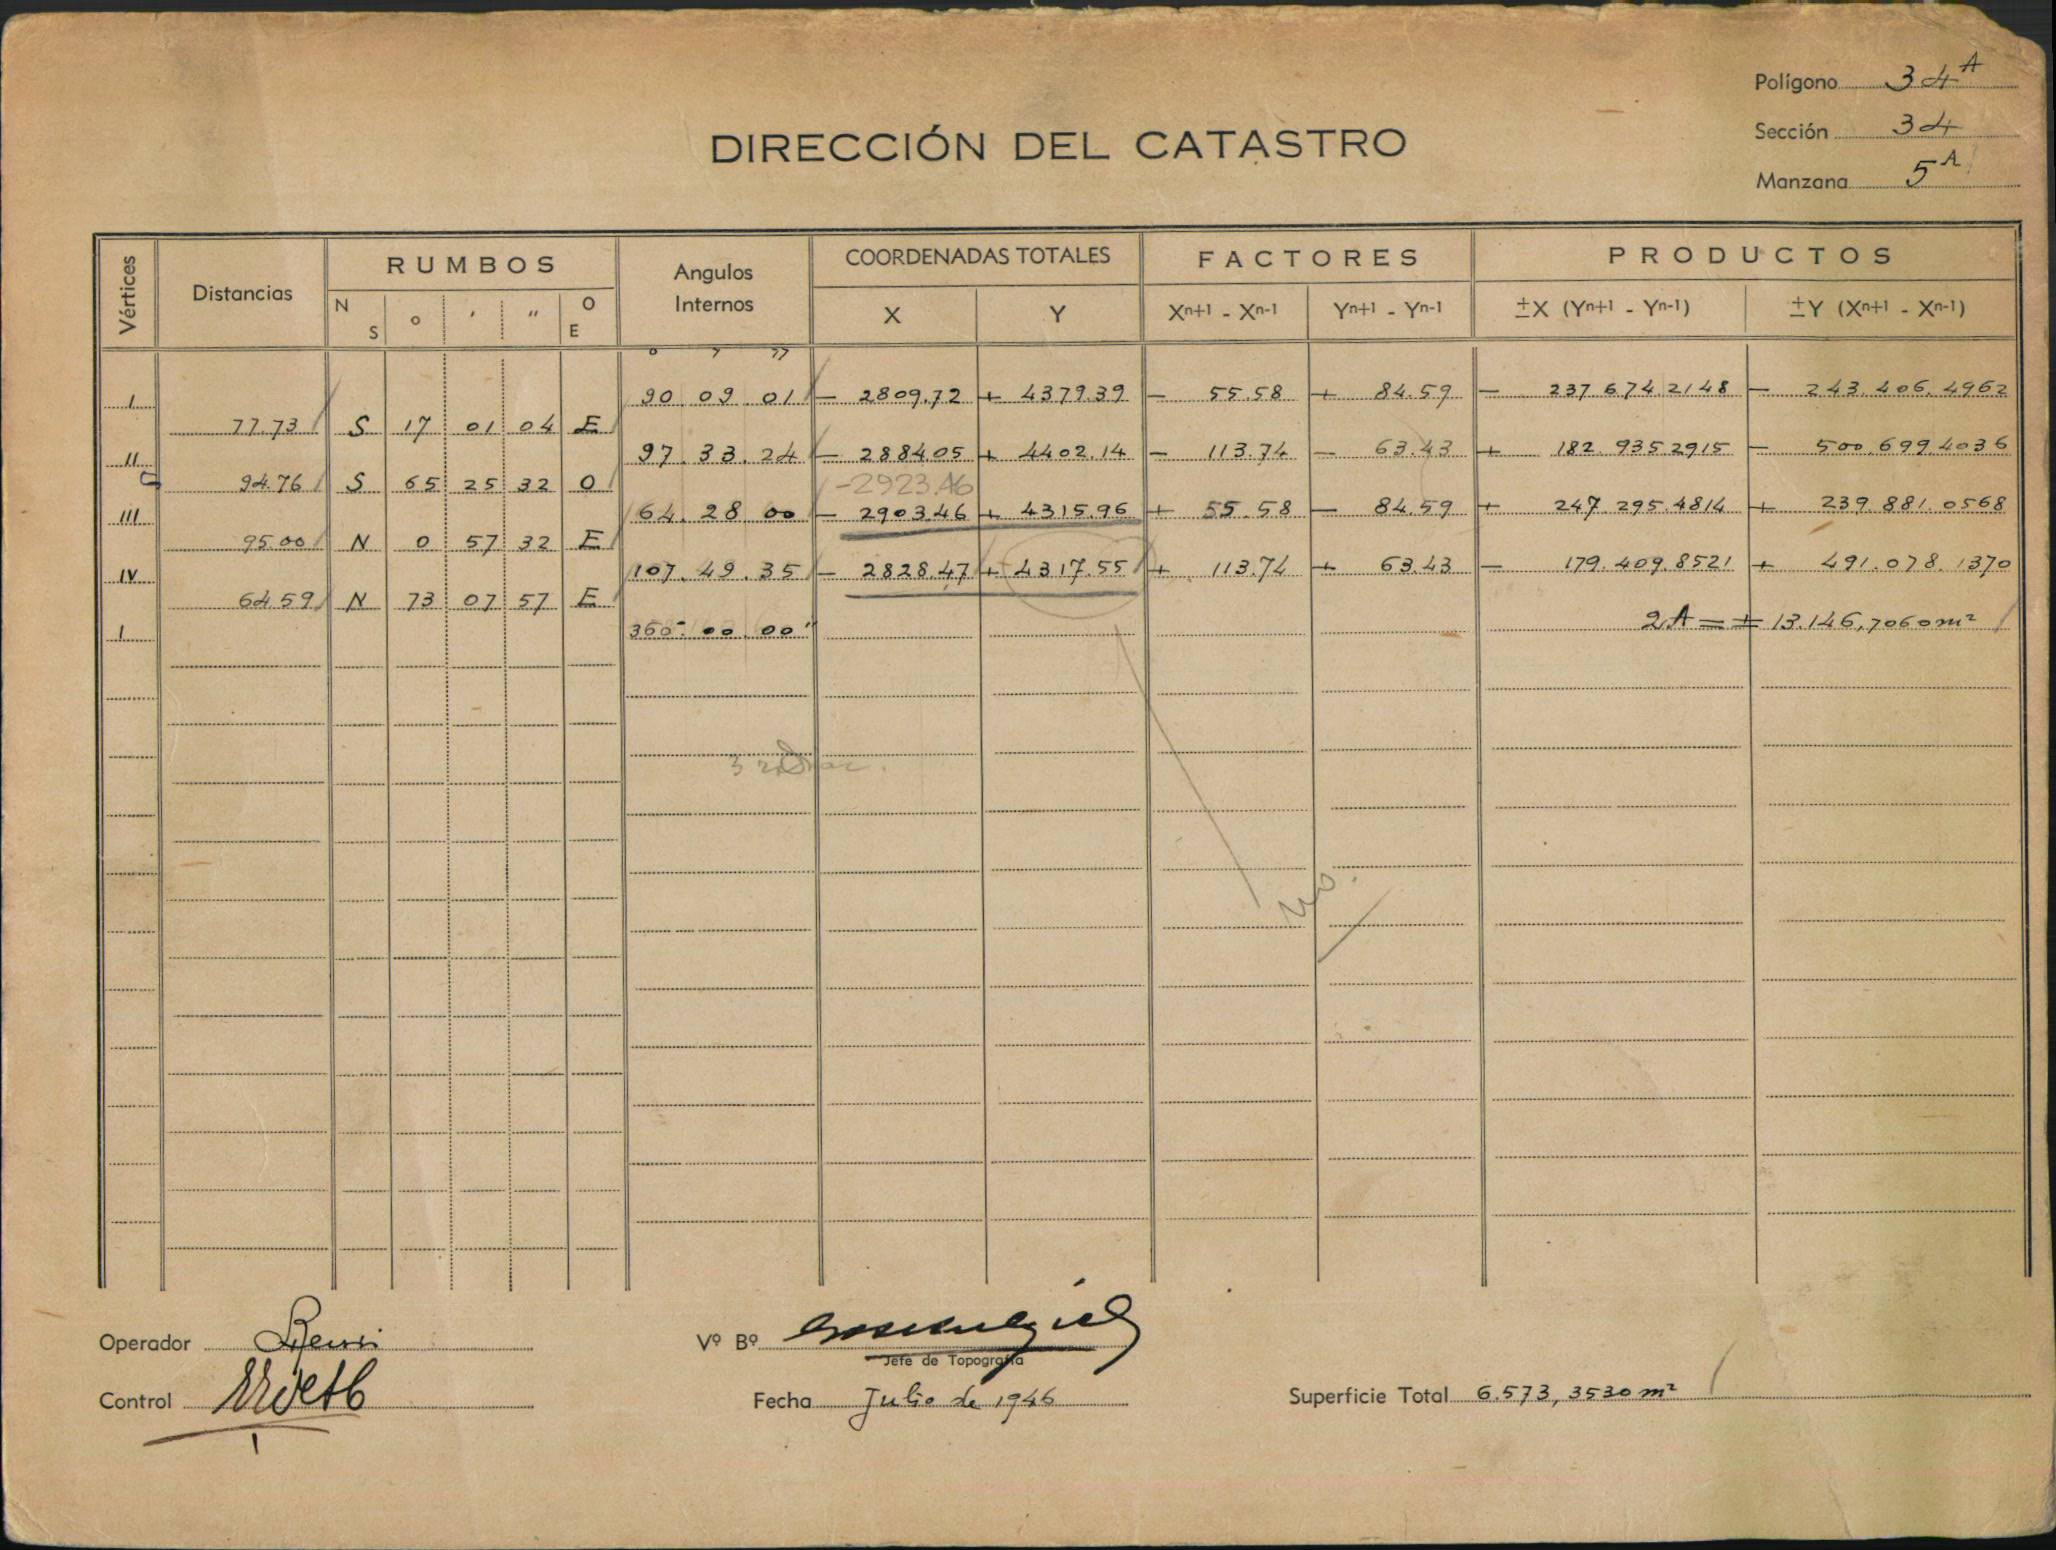 Polígono 34 A
Sección 34
Manzana 5 A
DIRECCIÓN DEL CATASTRO
Vértices Distancias RUMBOS Angulos Internos COORDENADAS TOTALES FACTORES PRODUCTOS
N S o ' " O E X Y Xn+1 - Xn-1 Yn+1 - Yn-1 ±X (Yn+1 - Yn-1) ±Y (Xn+1 - Xn-1)
o ' "
I 90 09 01 - 2809,72 + 4379.39 - 55.58 + 84.59 - 237.674.2148 - 243.406.4962
77.73 S 17 01 04 E
II 97.33.24 - 2884.05 + 4402.14 - 113.74 - 63.43 + 182.935.2915 - 500.699.4036
94.76 S 65 25 32 O
-2923.46
III 64.28 00 - 2903.46 + 4315.96 + 55.58 - 84.59 + 247.295.4814 + 239.881.0568
95.00 N 0 57 32 E
IV 107.49.35 - 2828.47 + 4317.55 + 113.74 + 63.43 - 179.409.8521 + 491.078.1370
64.59 N 73 07 57 E
I 360° 00 00" 2A = + 13.146,7060 m²
no.
Operador
Vº Bº
Jefe de Topografía
Control
Fecha Julio de 1946
Superficie Total 6.573,3530 m²